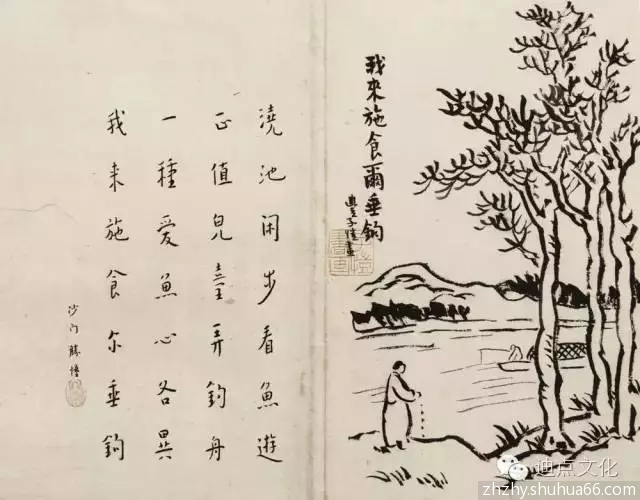 我來施食爾垂鉤
豐子愷畫
澆池闲步看魚遊
正值兒童弄釣舟
一種愛魚心各異
我来施食尔垂鉤
沙门勝
迪点文化
zhzhy.shuhua66.com